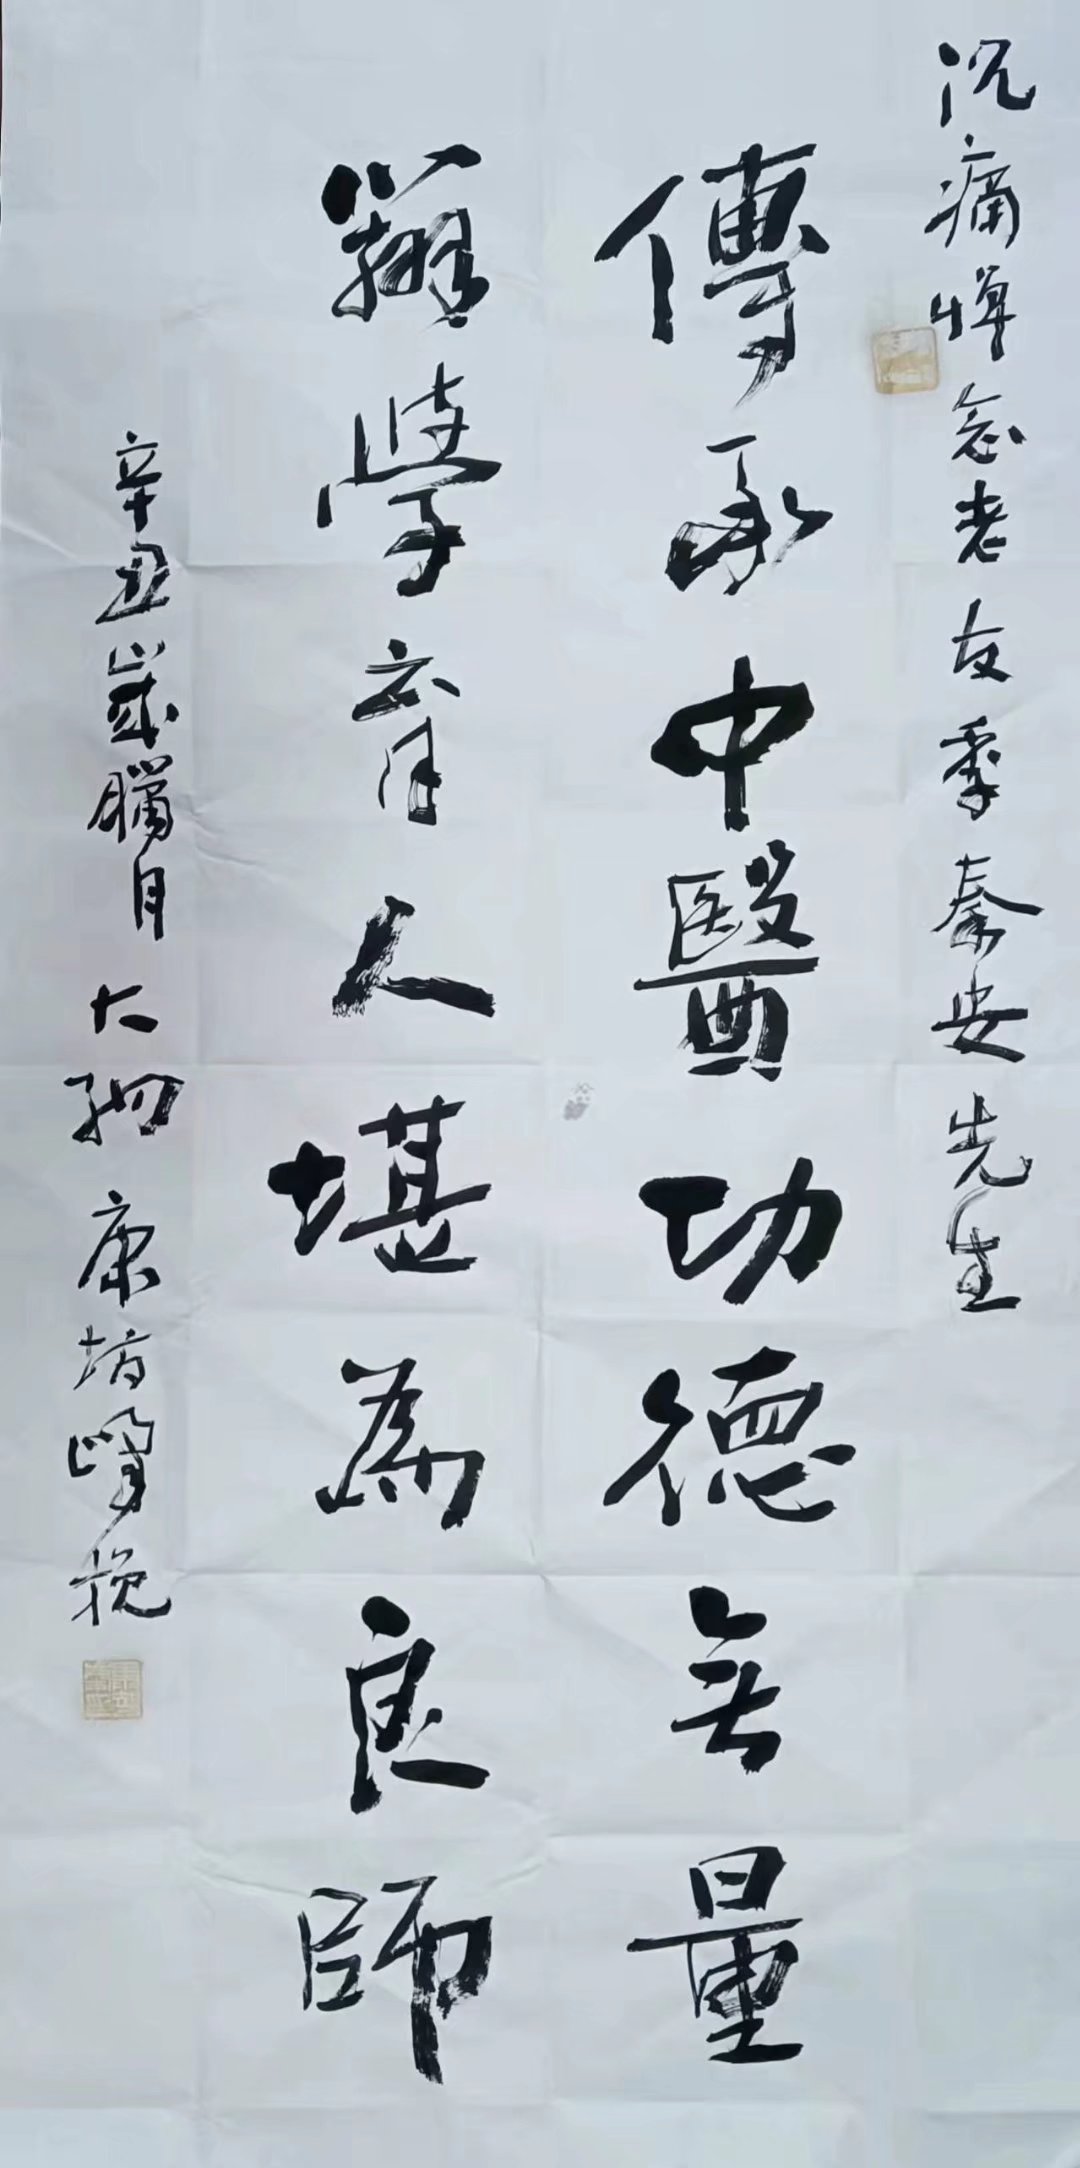 沉痛悼念老友季秦安先生
傳承中醫功德無量
辦學育人堪為良師
辛丑歲臘月大 康 峰挽